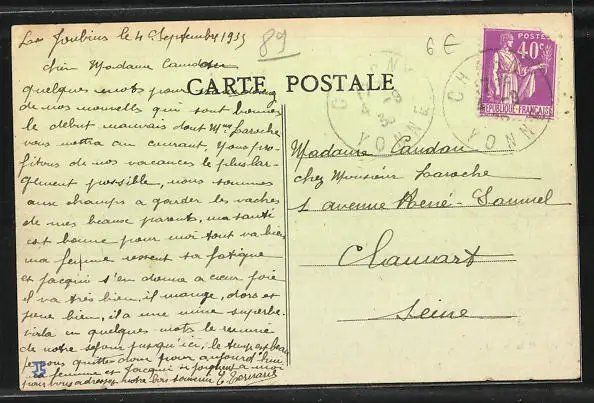 le 4 Septembre 1935
89
6 €
Chère Madame Caudou
CARTE POSTALE
quelques mots pour
de nos nouvelles qui sont bonnes
le début mauvais dont Mme Laroche
vous mettra au courant, Nous pro-
fitons de nos vacances le plus lar-
gement possible, nous sommes
aux champs a garder les vaches
de mes beaux parents, ma santé
est bonne pour moi tout va bien
ma femme ressent sa fatigue
et Jacqui s'en donne a cœur joie
il va très bien, il mange, dors et
bien, il a une mine superbe.
voila en quelques mots le résumé
de notre séjour jusqu'ici, le temps est beau
vous quitter donc pour aujourd'hui
femme et Jacqui se joignent a moi
pour vous adresser notre bon souvenir
Madame Caudou
chez Monsieur Laroche
1 avenue René-Samuel
Clamart
Seine
POSTES
40c
REPUBLIQUE FRANÇAISE
YONNE
YONNE